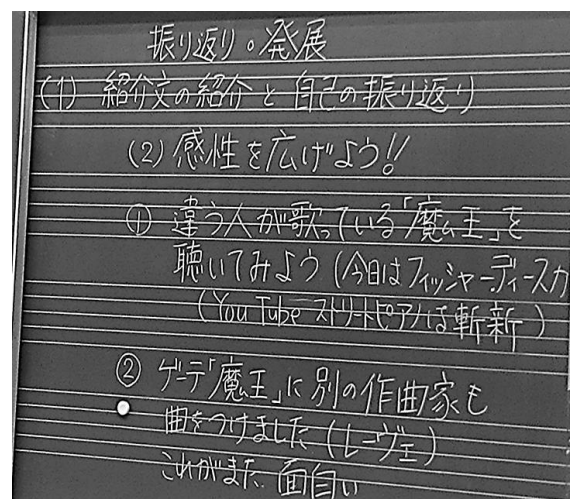 振り返り。発展
(1) 紹介文の紹介と自己の振り返り
(2) 感性を広げよう!!
① 違う人が歌っている「魔王」を
聴いてみよう (今日はフィッシャーディースカ
(You Tube ストリートピアノは斬新)
② ゲーテ「魔王」に別の作曲家も
曲をつけました (レーヴェ)
これがまた、面白い